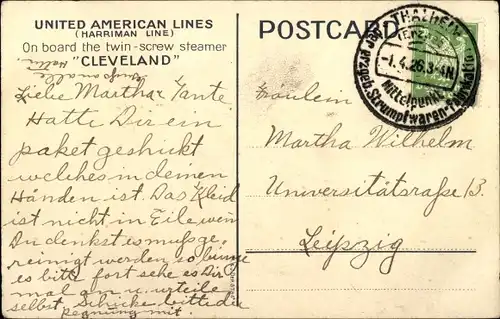 UNITED AMERICAN LINES
(HARRIMAN LINE)
On board the twin-screw steamer
"CLEVELAND"
Liebe Martha Tante
Hatte Dir ein
paket geshickt
welches in demen
Händen ist. Das Kleid
ist nicht in Eile wen
Du denkst es muss ge-
reinigt werden, so
es bitte fort sehe es Dir
mal an u. urteile
selbst Schicke bitte die
mit.
POSTCARD
THALHEIM
(ERZGEB.)
-1.4.26.3-4N
Mittelpunkt
der erzgeb. Strumpfwaren-Fabrikation
Fräulein
Martha Wilhelm
Universitätsraße 13.
Leipzig